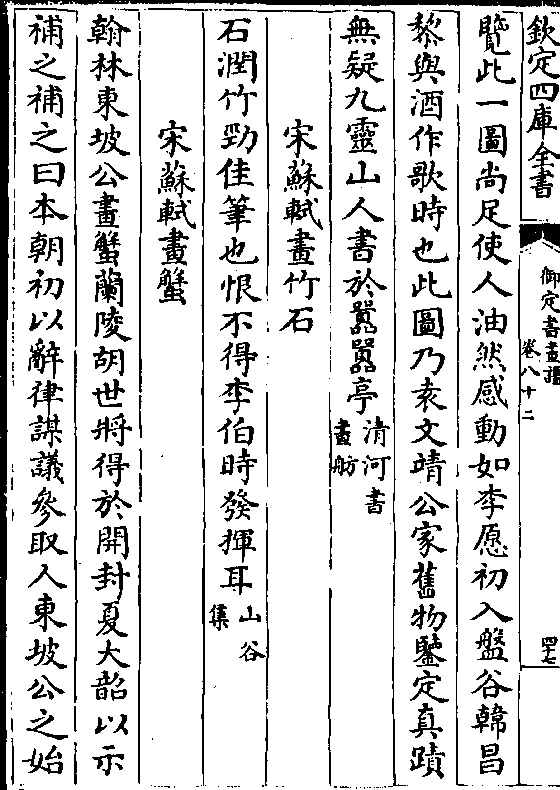 欽定四庫全書
御定書畫譜
卷八十二
四十七
覽此一圖尚足使人油然感動如李愿初入盤谷韓昌
黎與酒作歌時也此圖乃袁文靖公家舊物鑒定真蹟
無疑九靈山人書於嚚嚚亭清河書畫舫
宋蘇軾畫竹石
石潤竹勁佳筆也恨不得李伯時發揮耳山谷集
宋蘇軾畫蟹
翰林東坡公畫蟹蘭陵胡世將得於開封夏大韶以示
補之補之曰本朝初以辭律謀議參取人東坡公之始